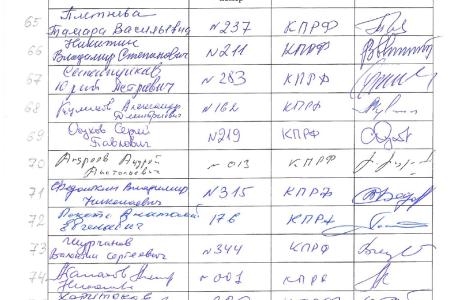 номер
65 Плетнева
Тамара Васильевна №237 КПРФ
66 Никитин
Владимир Степанович №211 КПРФ
67
Юрий Петрович №283 КПРФ
68 Куликов Александр
Дмитриевич №162 КПРФ
69 Обухов Сергей
Павлович №219 КПРФ
70 Андреев Андрей
Анатольевич №013 КПРФ
71 Федоткин Владимир
Николаевич №315 КПРФ
72 Локоть Анатолий
Евгеньевич 176 КПРФ
73 Шурчанов
Валентин Сергеевич №344 КПРФ
74 №001 КПРФ